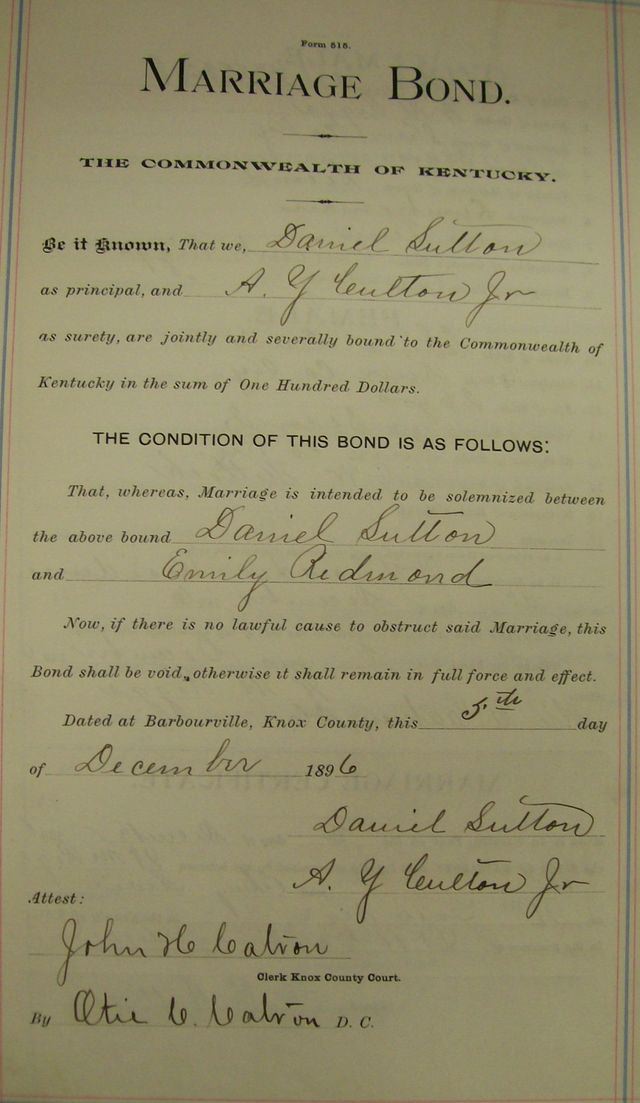 Form 515.
MARRIAGE BOND.
THE COMMONWEALTH OF KENTUCKY.
Be it Known, That we, Daniel Sutton
as principal, and A. Y Culton Jr
as surety, are jointly and severally bound to the Commonwealth of
Kentucky in the sum of One Hundred Dollars.
THE CONDITION OF THIS BOND IS AS FOLLOWS:
That, whereas, Marriage is intended to be solemnized between
the above bound Daniel Sutton
and Emily Redmond
Now, if there is no lawful cause to obstruct said Marriage, this
Bond shall be void, otherwise it shall remain in full force and effect.
Dated at Barbourville, Knox County, this 5th day
of December 1896
Daniel Sutton
A. Y Culton Jr
Attest:
John H Catron
Clerk Knox County Court.
By Otie C. Catron D. C.